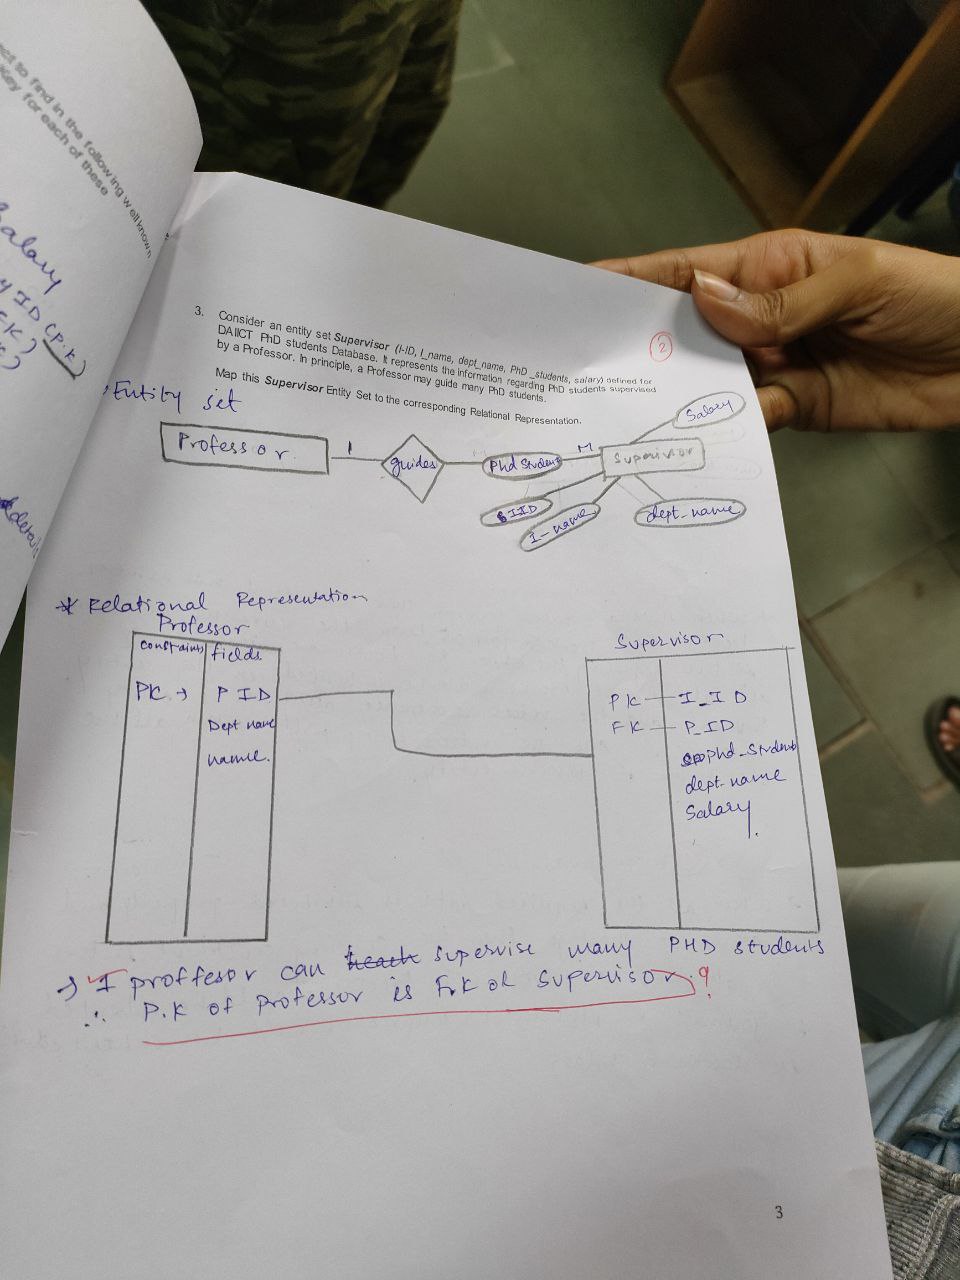 ct to find in the following well known
Key for each of these
Salary
y ID (P.K)
3. Consider an entity set Supervisor (I-ID, I_name, dept_name, PhD _students, salary) defined for
DAIICT PhD students Database. It represents the information regarding PhD students supervised
by a Professor. In principle, a Professor may guide many PhD students.
2
Map this Supervisor Entity Set to the corresponding Relational Representation.
Entity set
Professor
1
guides
Phd Student
M
Supervisor
Salary
IID
I-name
dept-name
* Relational Representation
Professor
constraints fields
PK → P ID
Dept name
name.
Supervisor
PK I_ID
FK P_ID
phd-Student
dept-name
Salary.
→ 1 proffesor can supervise many PHD students
∴ P.K of professor is F.K of Supervisor. ?
3